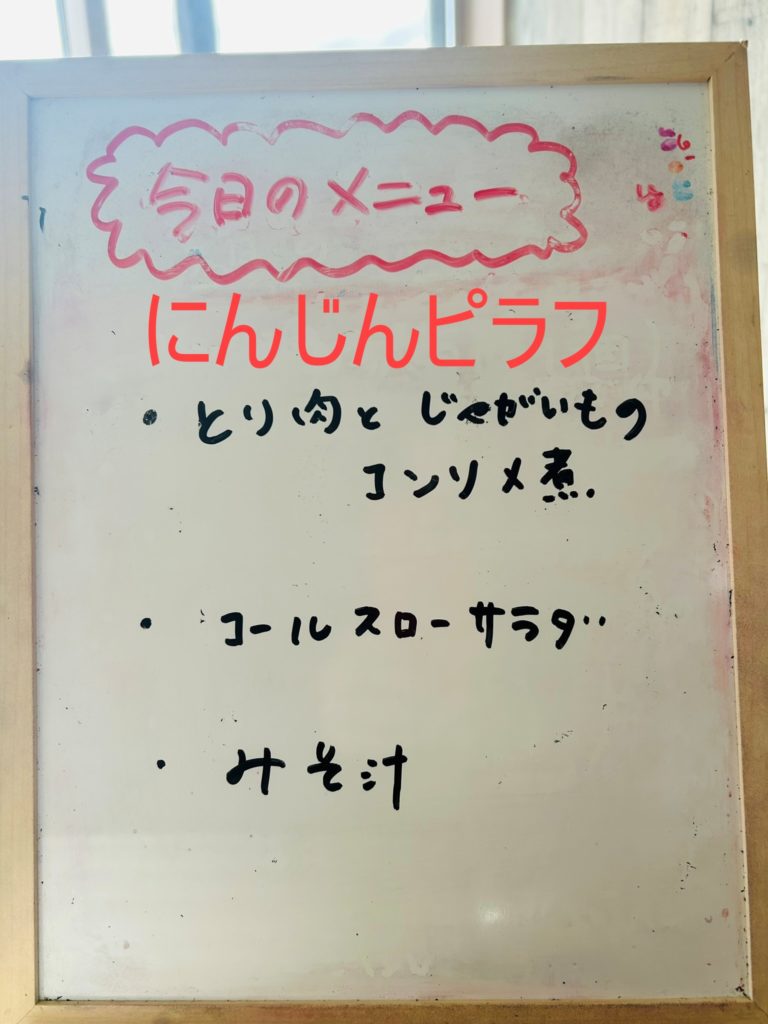 今日のメニュー
にんじんピラフ
・とり肉とじゃがいもの
コンソメ煮.
・コールスローサラダ
・みそ汁